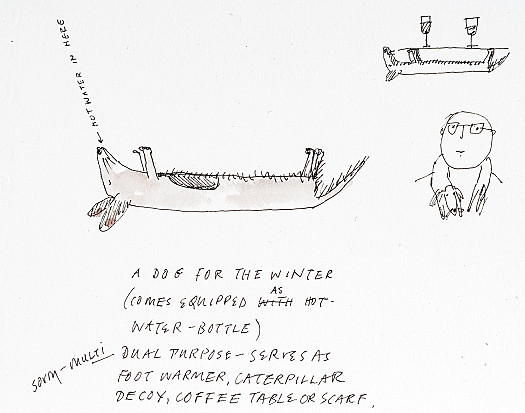 ← HOT WATER IN HERE
A DOG FOR THE WINTER
(COMES EQUIPPED WITH AS HOT-
WATER-BOTTLE)
sorry-multi DUAL PURPOSE - SERVES AS
FOOT WARMER, CATERPILLAR
DECOY, COFFEE TABLE OR SCARF.